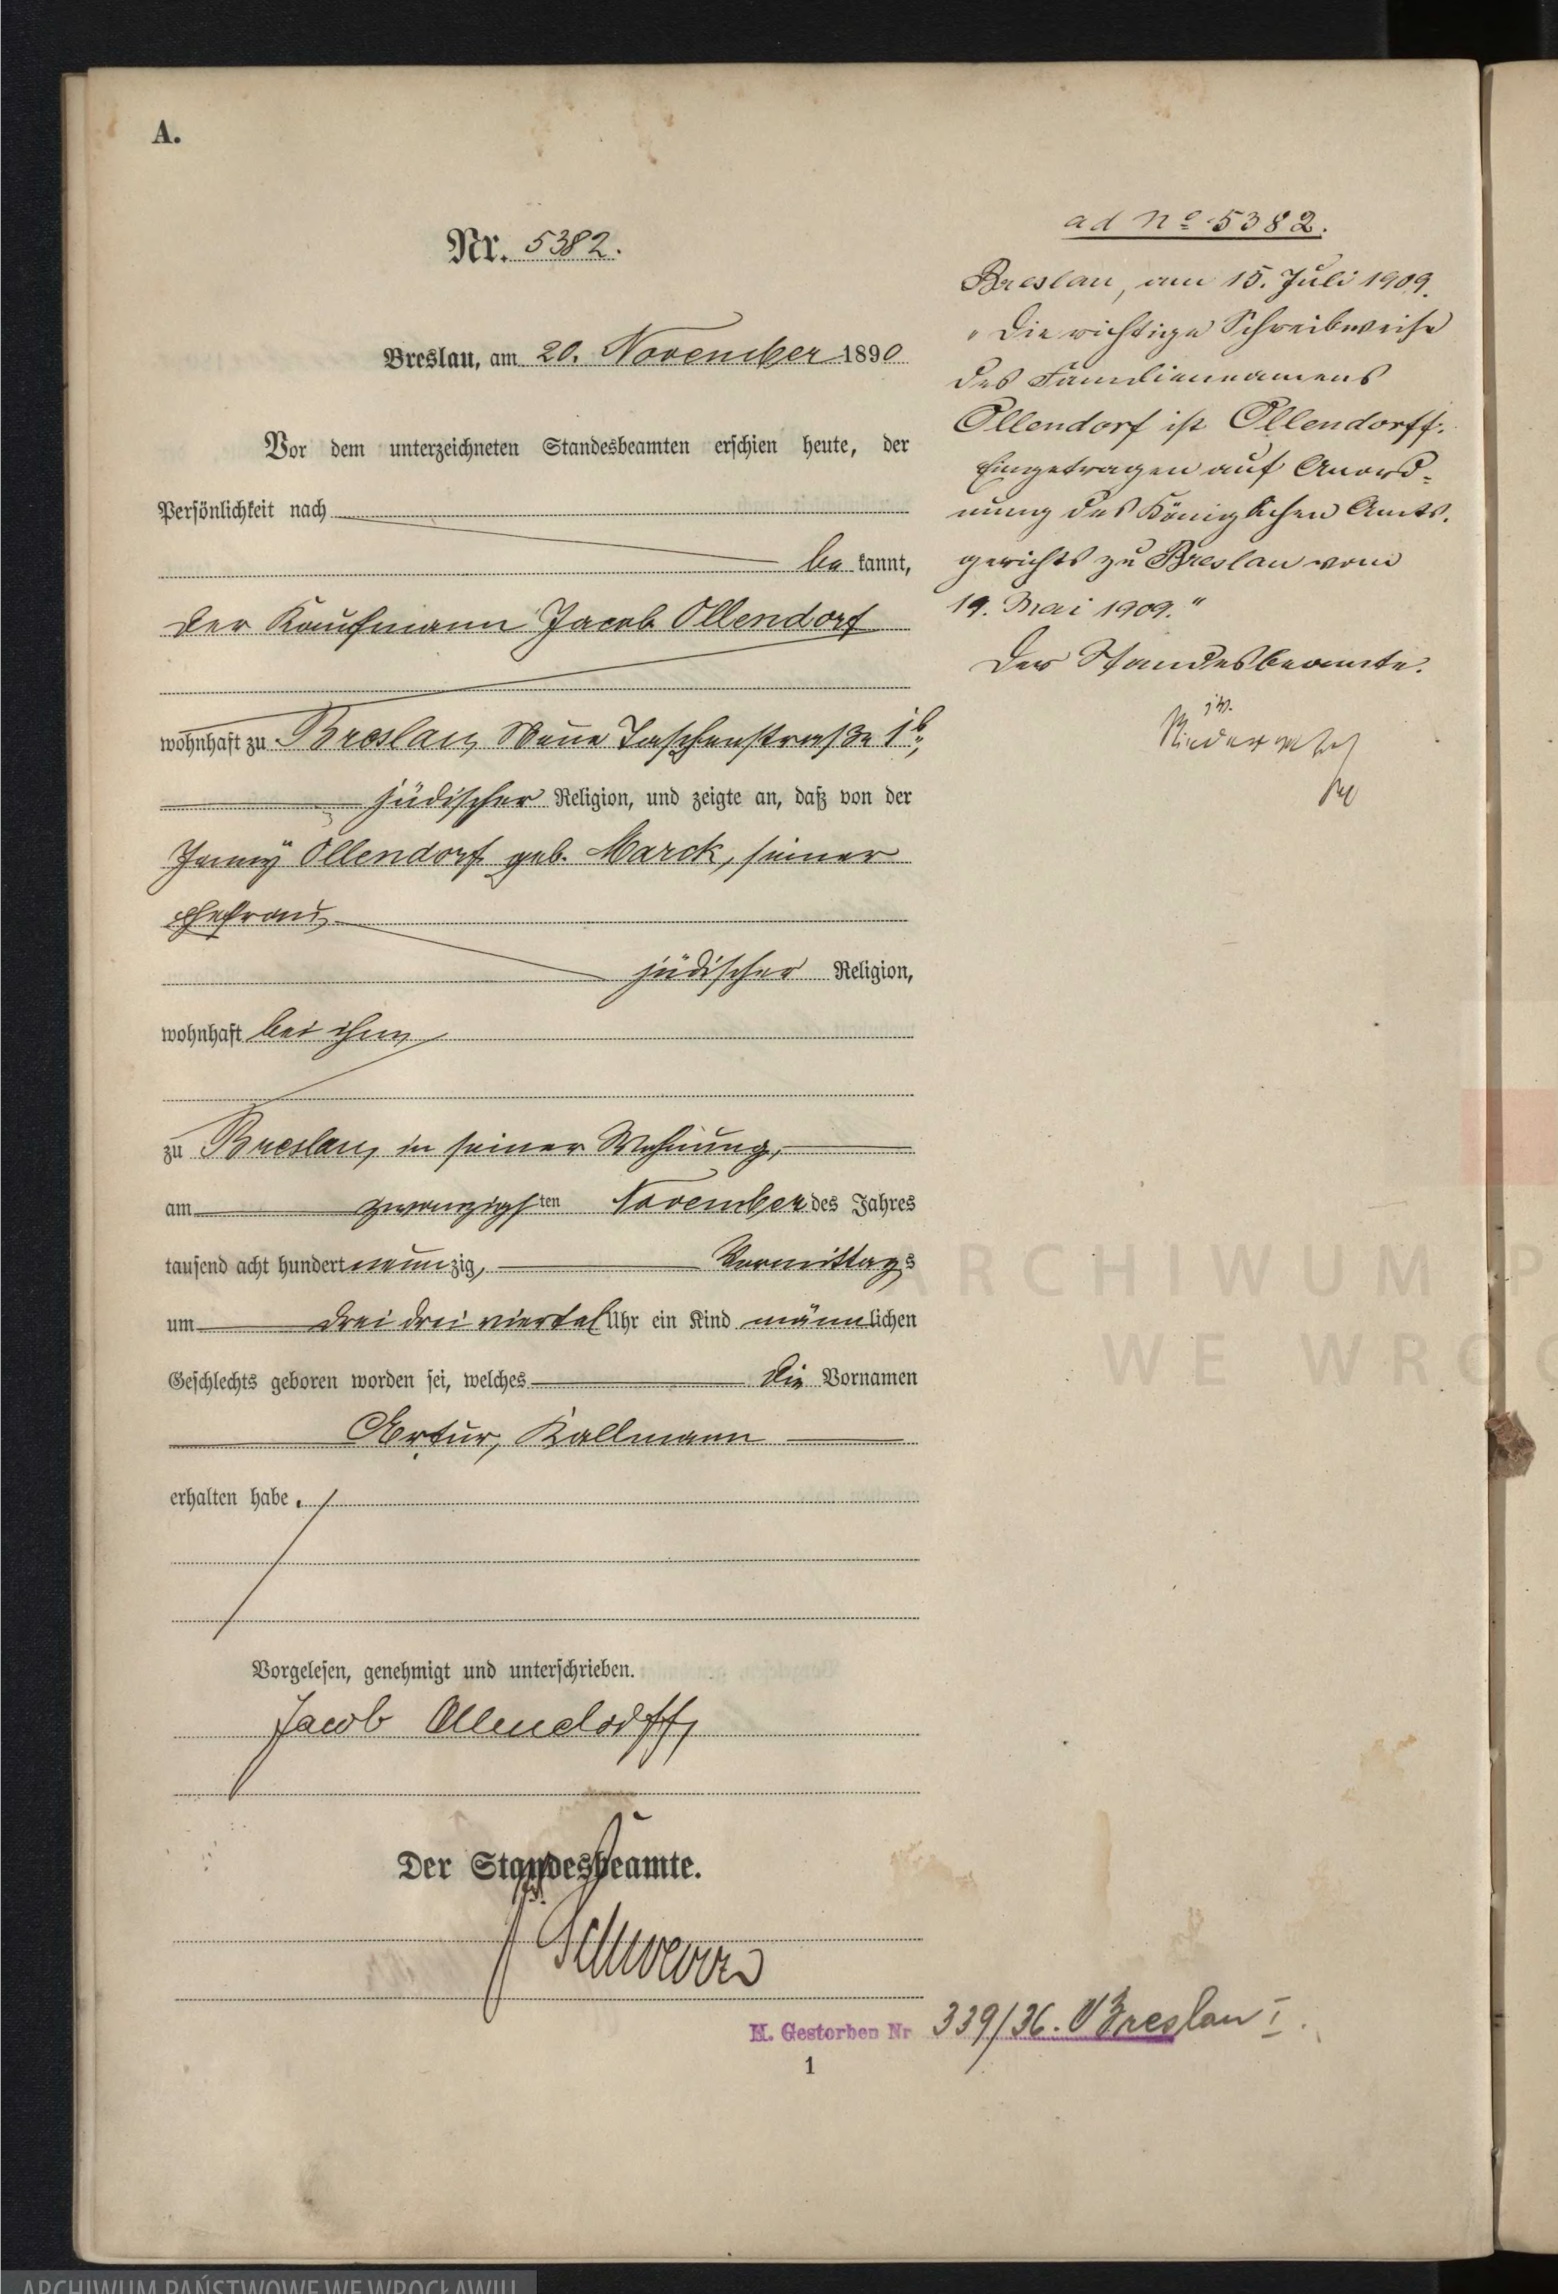 A.
Nr. 5382.
Breslau, am 20. November 1890
Vor dem unterzeichneten Standesbeamten erschien heute, der
Persönlichkeit nach
be kannt,
der Kaufmann Jacob Ollendorf
wohnhaft zu Breslau, Neue Taschenstraße 1b,
jüdischer Religion, und zeigte an, daß von der
Jenny Ollendorf geb. Marck, seiner
Ehefrau,
jüdischer Religion,
wohnhaft bei ihm
zu Breslau, in seiner Wohnung,
am zwanzigsten November des Jahres
tausend acht hundert neunzig, Vormittags
um drei drei viertel Uhr ein Kind männlichen
Geschlechts geboren worden sei, welches die Vornamen
Artur, Kallmann
erhalten habe.
Vorgelesen, genehmigt und unterschrieben.
Jacob Ollendorff
Der Standesbeamte.
H. Gestorben Nr 339/36. Breslau I.
1
ad No 5382.
Breslau, am 15. Juli 1909.
"Die richtige Schreibweise
des Familiennamens
Ollendorf ist Ollendorff.
Eingetragen auf Anord-
nung des Königlichen Amts-
gerichts zu Breslau vom
19. Mai 1909."
Der Standesbeamte.
ARCHIWUM P
WE WROC
ARCHIWUM PAŃSTWOWE WE WROCŁAWIU